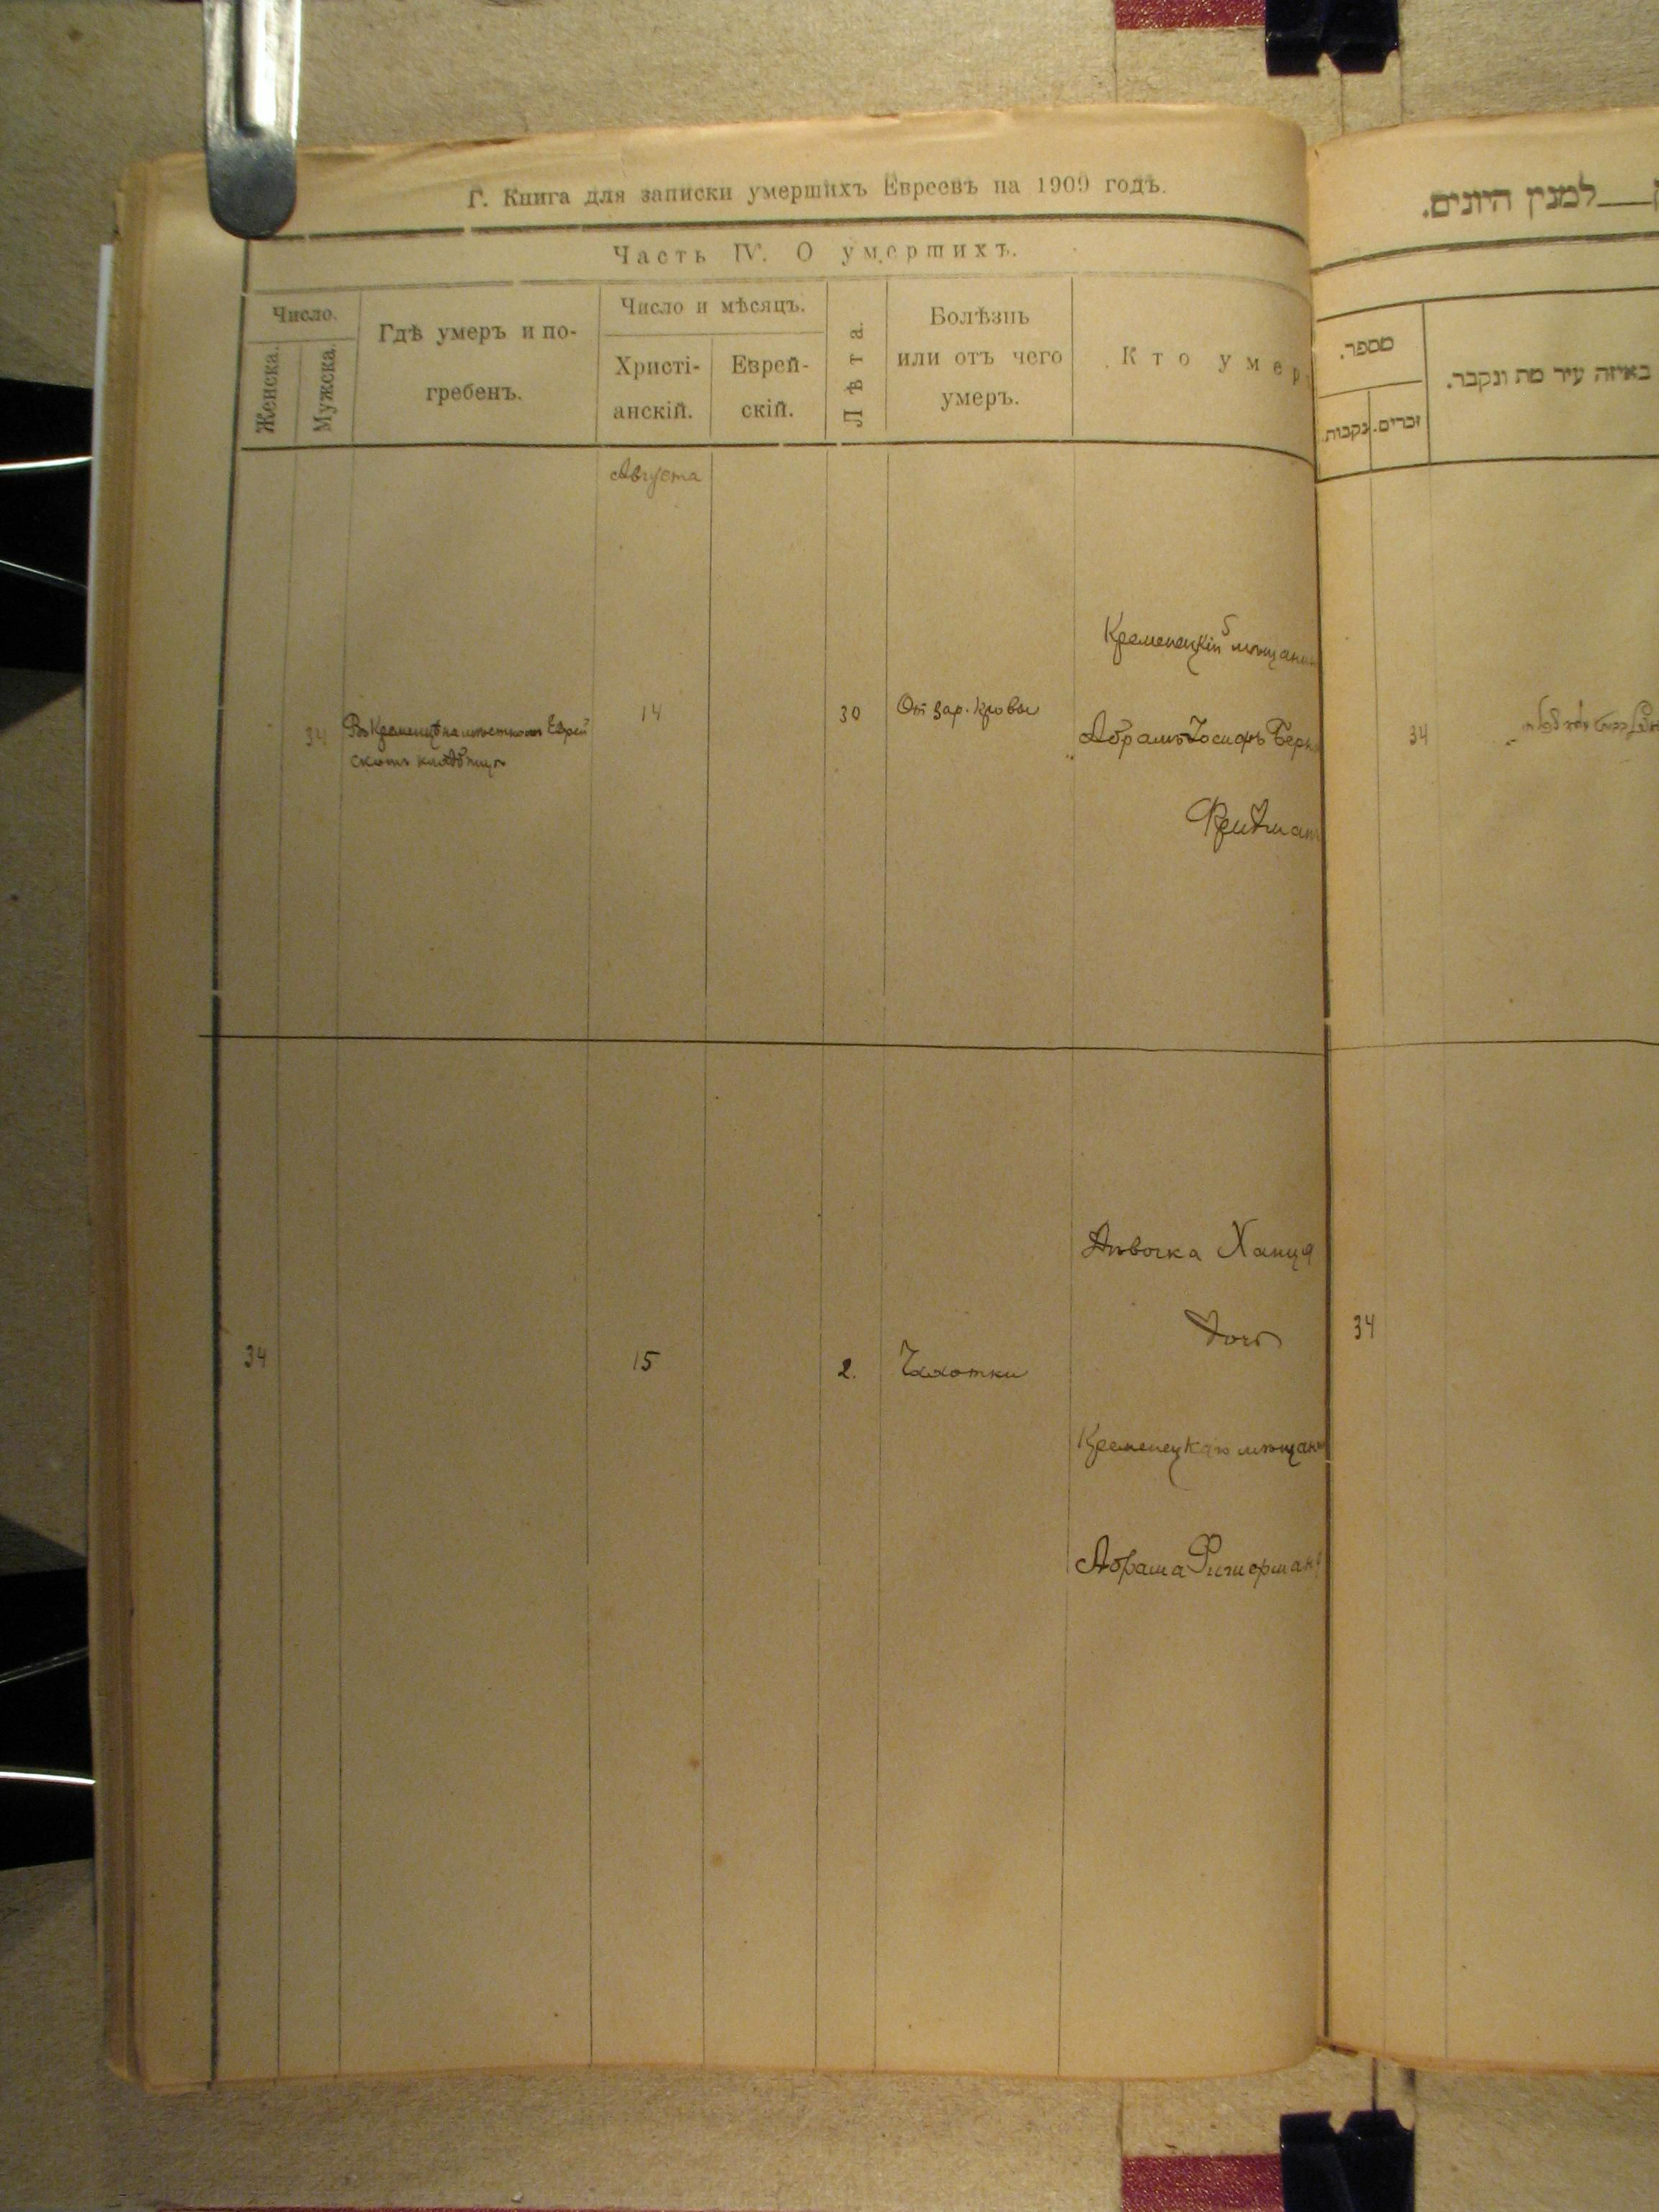 Г. Книга для записки умершихъ Евреевъ на 1909 годъ.
Часть IV. О умершихъ.
Число.
Женска.
Мужска.
Гдѣ умеръ и по-
гребенъ.
Число и мѣсяцъ.
Христі-
анскій.
Еврей-
скій.
Лѣта.
Болѣзнь
или отъ чего
умеръ.
Кто умер
Августа
34
Въ Кременцѣ на мѣстномъ Еврей
скомъ кладбищѣ
14
30
От зар. крови
Кременецкій мѣщанин
Абрамъ Іосифъ Берк
Фридман
34
15
2.
Чахотки
Дѣвочка Ханця
дочь
Кременецкаго мѣщан
Абрама Фишерман
למנין היונים.
מספר.
נקבות.
זכרים.
באיזה עיר מת ונקבר.
34
34